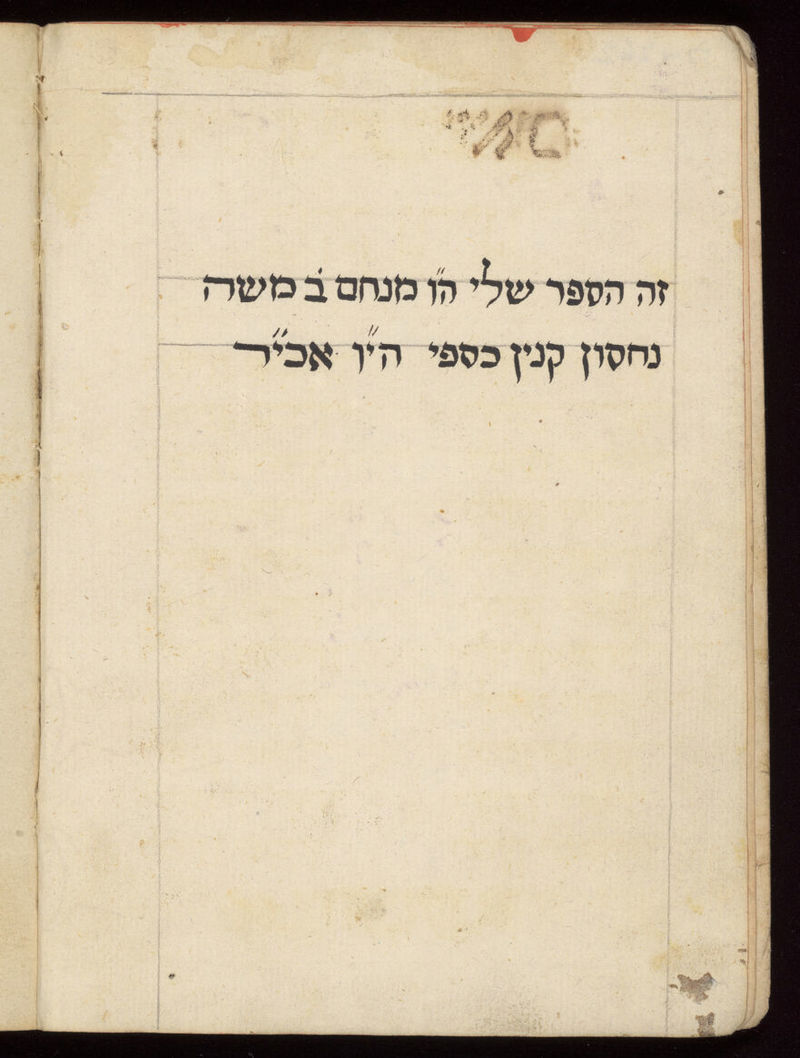 זה הספר שלי ה״ו מנחם ב׳ משה
נחסון קנין כספי הי״ו אכי״ר